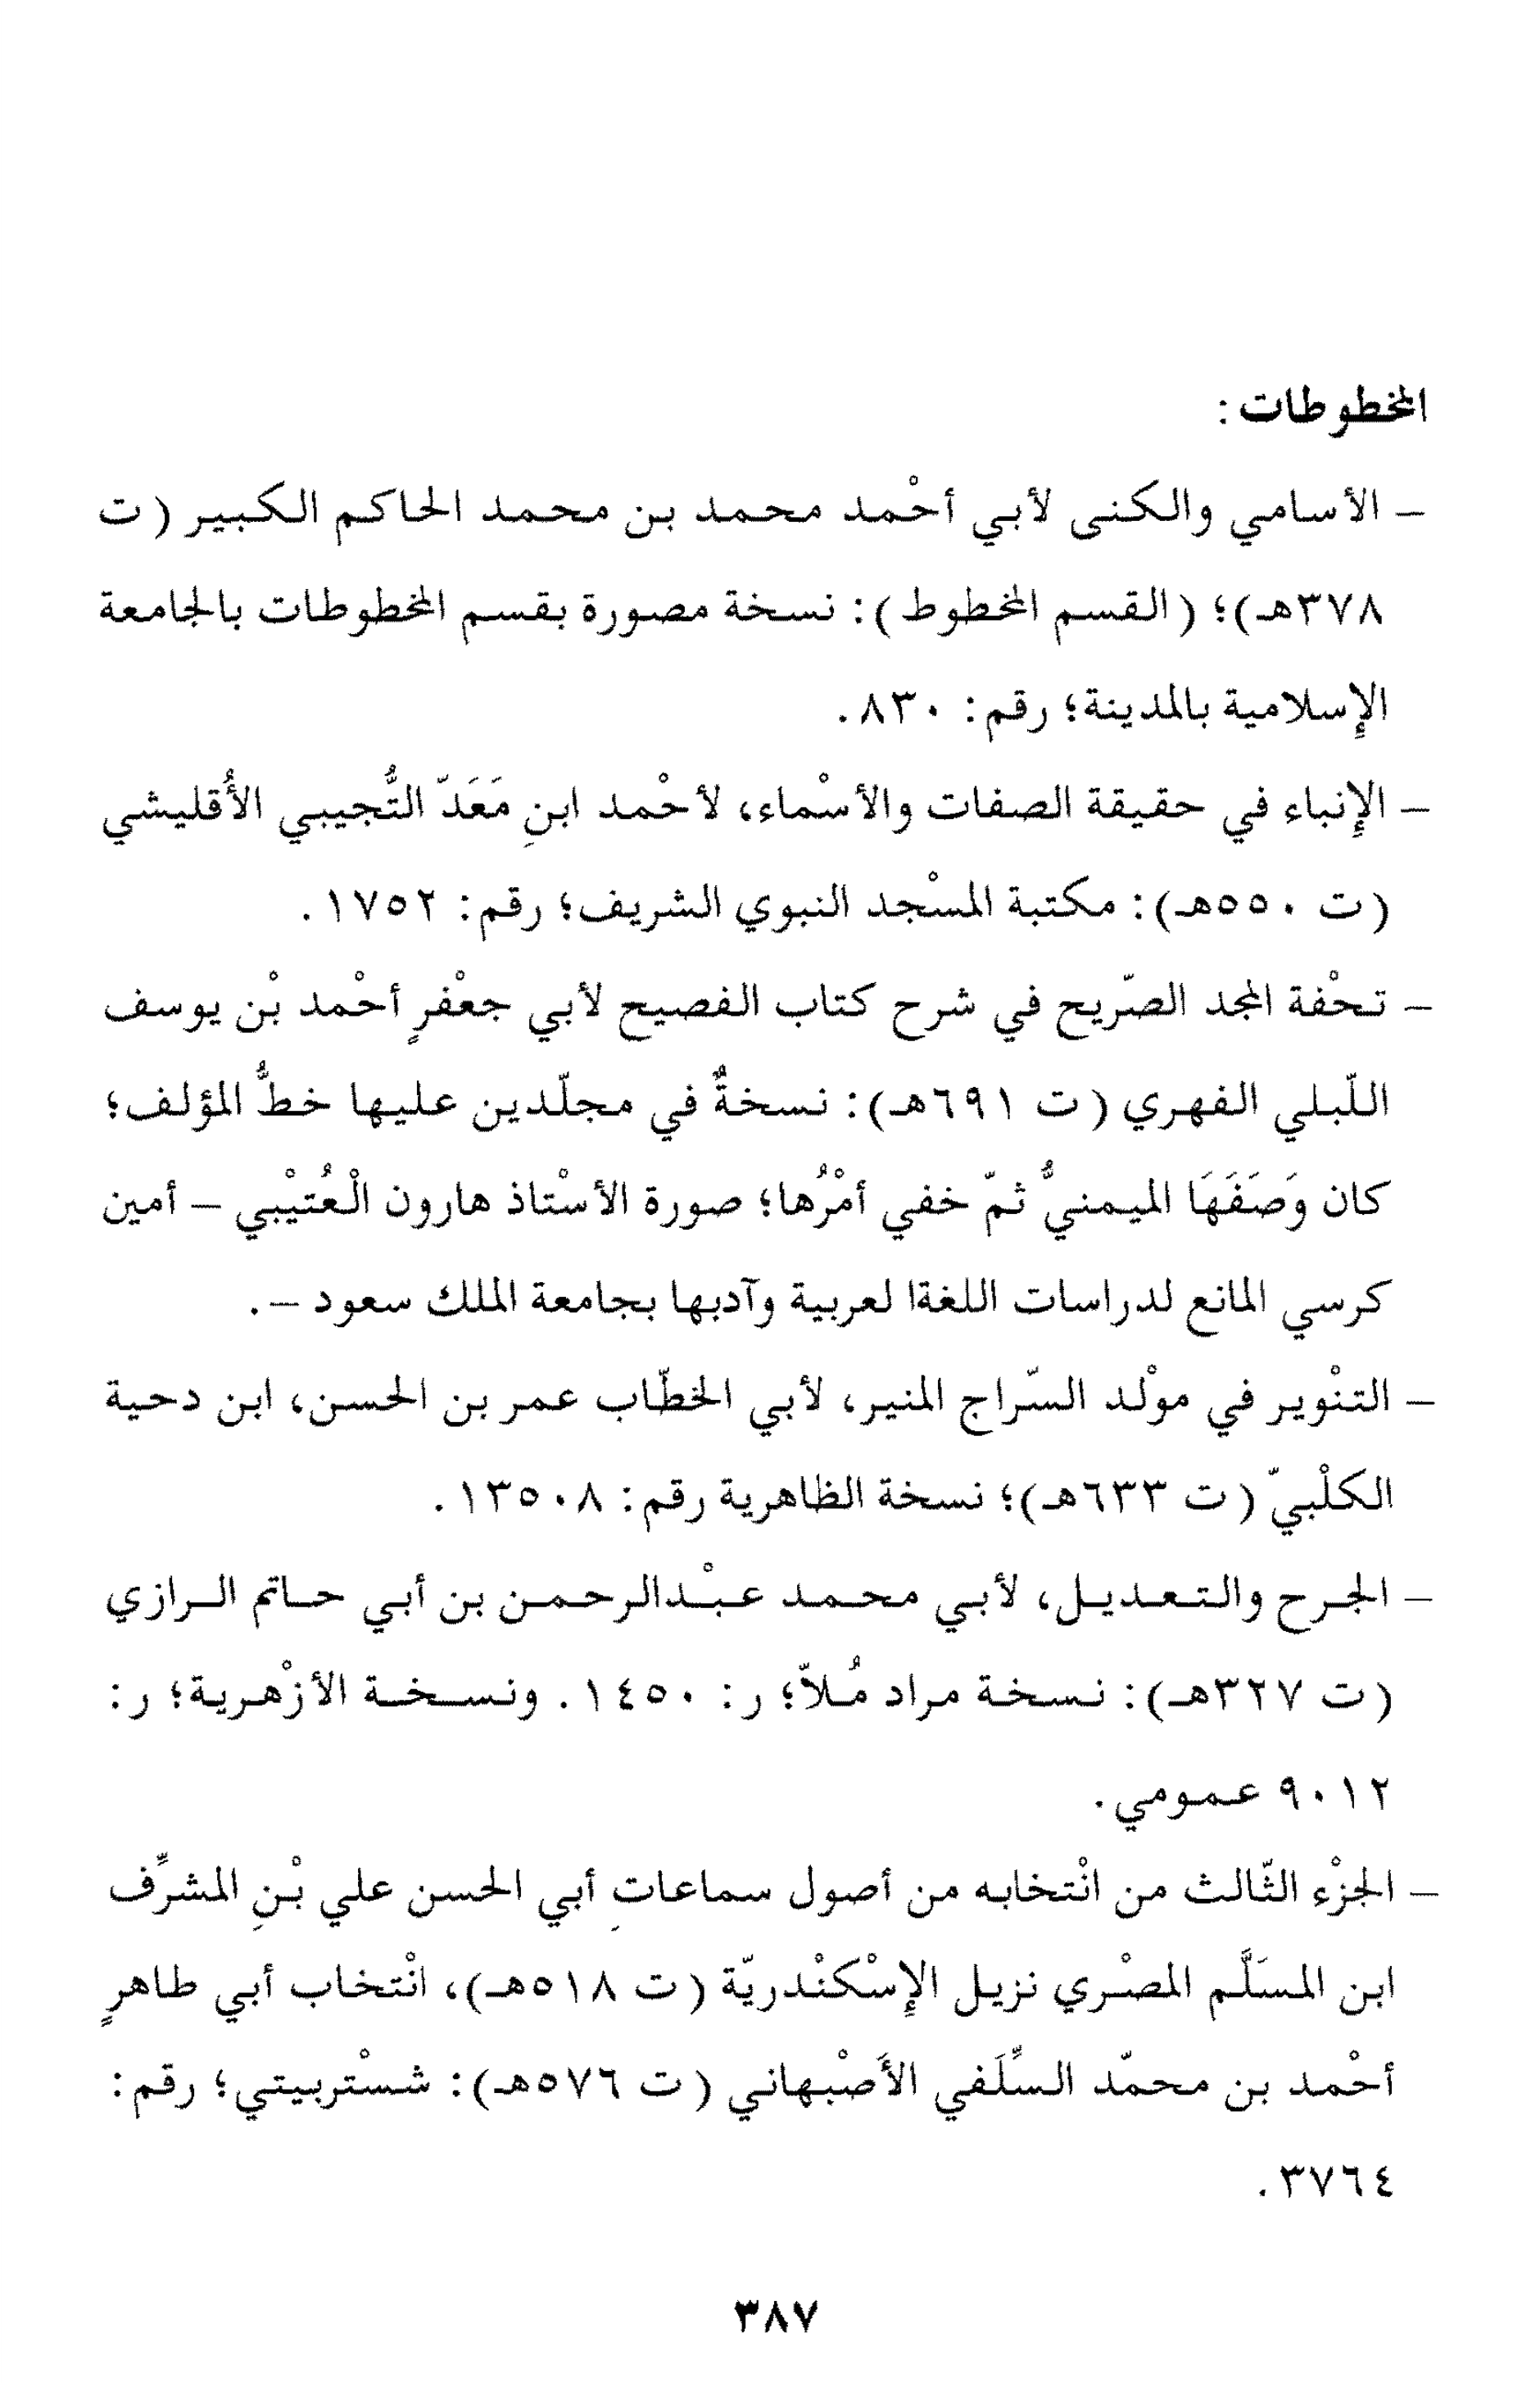 المخطوطات :
– الأسامي والكنى لأبي أحْمد محمد بن محمد الحاكم الكبير ( ت
٣٧٨هـ)؛ ( القسم المخطوط ) : نسخة مصورة بقسم المخطوطات بالجامعة
الإسلامية بالمدينة؛ رقم : ٨٣٠ .
– الإنباء في حقيقة الصفات والأسْماء، لأحْمد ابنِ مَعَدّ التُّجيبي الأُقليشي
( ت ٥٥٠هـ) : مكتبة المسْجد النبوي الشريف؛ رقم : ١٧٥٢ .
– تحْفة المجد الصّريح في شرح كتاب الفصيح لأبي جعْفرٍ أحْمد بْن يوسف
اللّبلي الفهري ( ت ٦٩١هـ) : نسخةٌ في مجلّدين عليها خطُّ المؤلف؛
كان وَصَفَهَا الميمنيُّ ثمّ خفي أمْرُها؛ صورة الأسْتاذ هارون الْعُتيْبي – أمين
كرسي المانع لدراسات اللغةا لعربية وآدبها بجامعة الملك سعود – .
– التنْوير في موْلد السّراج المنير، لأبي الخطّاب عمر بن الحسن، ابن دحية
الكلْبيّ ( ت ٦٣٣هـ)؛ نسخة الظاهرية رقم : ١٣٥٠٨ .
– الجرح والتعديل، لأبي محمد عبْدالرحمن بن أبي حاتم الرازي
( ت ٣٢٧هـ) : نسخة مراد مُلاّ؛ ر : ١٤٥٠ . ونسخة الأزْهرية؛ ر :
٩٠١٢ عمومي .
– الجزْء الثّالث من انْتخابه من أصول سماعاتِ أبي الحسن علي بْنِ المشرِّف
ابن المسَلَّم المصْري نزيل الإسْكنْدريّة ( ت ٥١٨هـ)، انْتخاب أبي طاهرٍ
أحْمد بن محمّد السِّلَفي الأَصْبهاني ( ت ٥٧٦هـ) : شسْتربيتي؛ رقم :
٣٧٦٤ .
٣٨٧